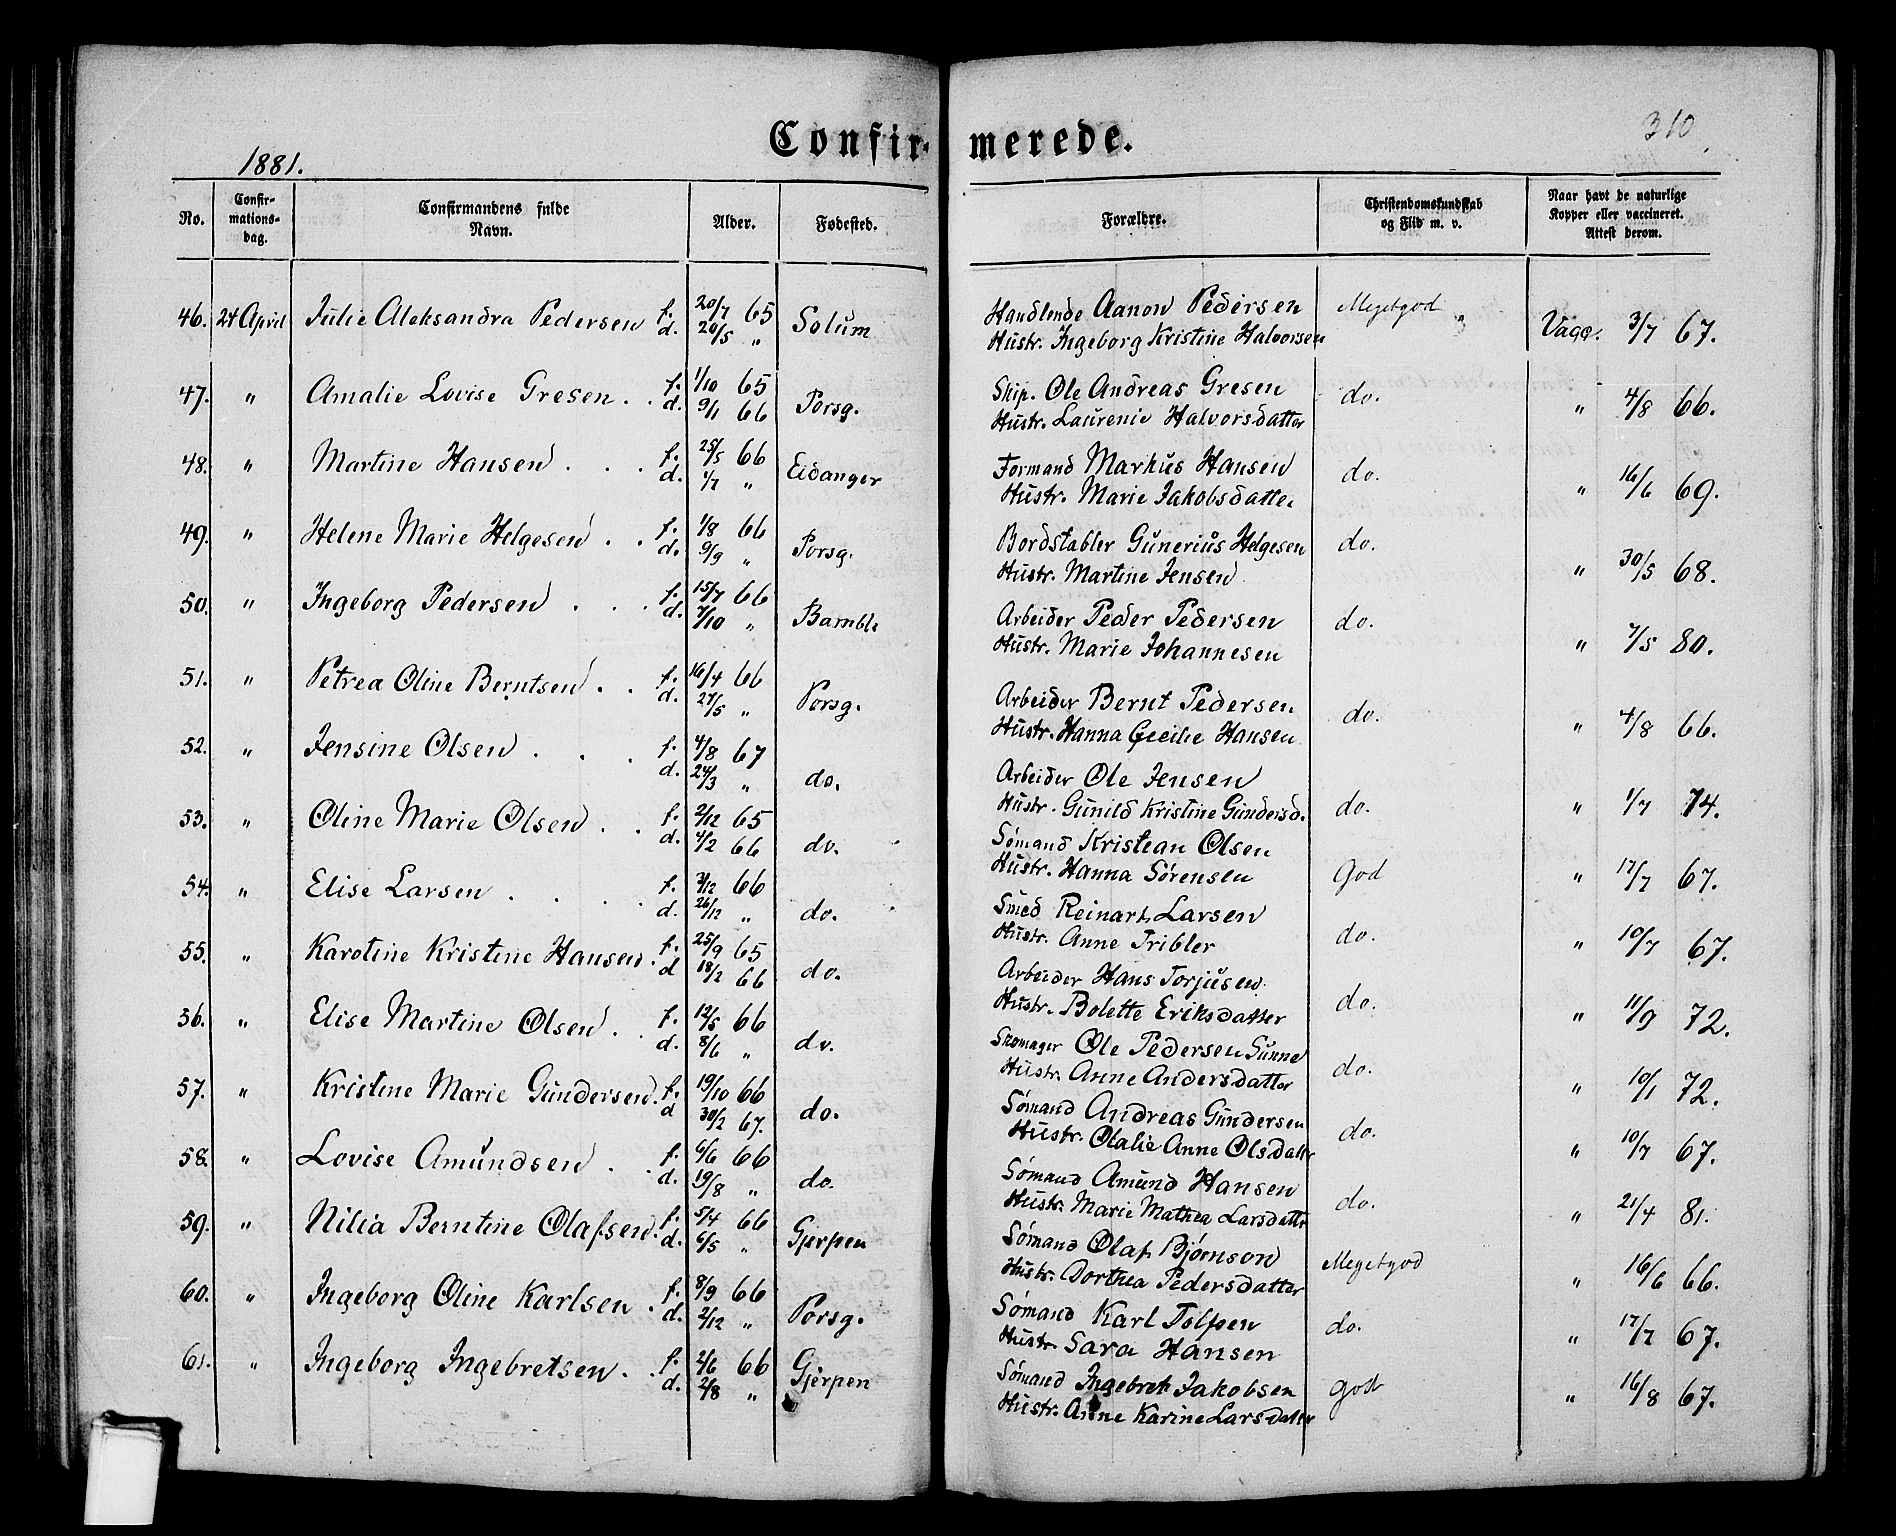 Confir- merede.
310
1881.
No.
Confir-
mations-
dag.
Confirmandens fulde
Navn.
Alder.
Fødested.
Forældre.
Christendomskundskab
og Flid m. v.
Naar havt de naturlige
Kopper eller vaccineret.
Attest derom.
46. 24 April Julie Aleksandra Pedersen f. 20/7 65 Solum Handlende Aanon Pedersen Megetgod Vacc. 3/7 67.
d. 20/5 " Hustr. Ingeborg Kristine Halvorsen
47. " Amalie Lovise Gresen . . f. 1/10 65 Porsg. Skip. Ole Andreas Gresen do. " 4/8 66.
d. 9/1 66 Hustr. Laurenie Halvorsdatter
48. " Martine Hansen . . . f. 25/5 66 Eidanger Formand Markus Hansen do. " 16/6 69.
d. 1/7 " Hustr. Marie Jakobsdatter
49. " Helene Marie Helgesen . . f. 1/8 66 Porsg. Bordstabler Gunerius Helgesen do. " 30/5 68.
d. 9/9 " Hustr. Martine Jensen
50. " Ingeborg Pedersen . . . f. 15/7 66 Bamble Arbeider Peder Pedersen do. " 7/5 80.
d. 7/10 " Hustr. Marie Johannesen
51. " Petrea Oline Berntsen . . f. 16/4 66 Porsg. Arbeider Bernt Pedersen do. " 4/8 66.
d. 27/5 " Hustr. Hanna Cecilie Hansen
52. " Jensine Olsen . . . f. 4/8 67 do. Arbeider Ole Jensen do. " 1/7 74.
d. 24/3 " Hustr. Gunild Kristine Gundersd.
53. " Oline Marie Olsen . . f. 2/12 65 do. Sømand Kristian Olsen God " 17/7 67.
d. 4/2 66 Hustr. Hanna Sørensen
54. " Elise Larsen . . . . f. 3/12 66 do. Smed Reinart Larsen do. " 10/7 67.
d. 26/12 " Hustr. Anne Tribler
55. " Karoline Kristine Hansen . f. 25/9 65 do. Arbeider Hans Torjusen do. " 11/9 72.
d 18/2 66 Hustr. Bolette Eriksdatter
56. " Elise Martine Olsen . . f. 12/5 66 do. Skomager Ole Pedersen Sunne do. " 10/1 72.
d. 8/6 " Hustr. Anne Andersdatter
57. " Kristine Marie Gundersen . f. 19/10 66 do. Sømand Andreas Gundersen do. " 10/7 67.
d 30/2 67. Hustr. Olalie Anne Olsdatter
58. " Lovise Amundsen . . f. 6/6 66 do. Sømand Amund Hansen do. " 21/4 81.
d. 19/8 " Hustr. Marie Mathea Larsdatter
59. " Nilia Berntine Olafsen . f. 5/4 66 Gjerpen Sømand Olaf Bjørnson Megetgod " 16/6 66.
d. 6/5 " Hustr. Dorthea Pedersdatter
60. " Ingeborg Oline Karlsen . f. 8/9 66 Porsg. Sømand Karl Tolfsen do. " 17/7 67.
d. 2/12 " Hustr. Sara Hansen
61. " Ingeborg Ingebretsen . . f. 2/6 66 Gjerpen Sømand Ingebret Jakobsen god " 16/8 67.
d. 2/8 " Hustr. Anne Karine Larsdatter